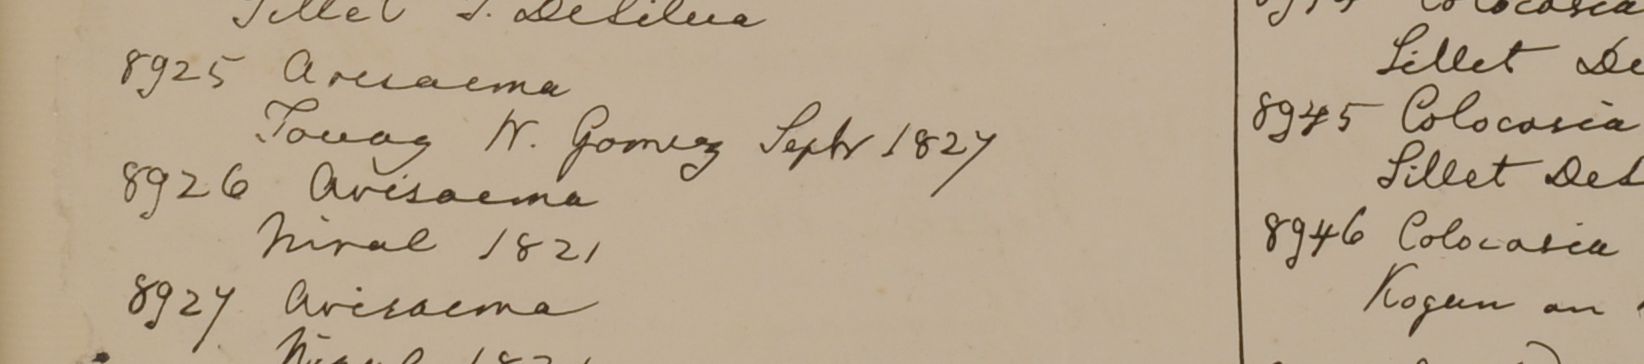 Sillet F. DeSilva
8925 Arisaema
Tavay W. Gomez Septr 1827
8926 Arisaema
Nival 1821
8927 Arisaema
1821
Colocasia
Sillet De
8945 Colocasia
Sillet DeS
8946 Colocasia
Kogun an